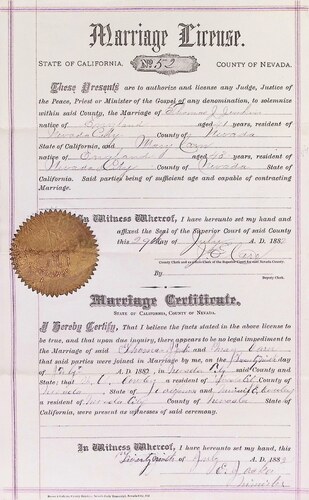 Marriage License.
STATE OF CALIFORNIA, No 52 COUNTY OF NEVADA.
These Presents are to authorize and license any Judge, Justice of
the Peace, Priest or Minister of the Gospel of any denomination, to solemnize
within said County, the Marriage of Thomas J
native of aged 21 years, resident of
Nevada City County of Nevada
State of California, and Mary Carr
native of England aged years, resident of
Nevada City County of Nevada State of
California. Said parties being of sufficient age and capable of contracting
Marriage.
In Witness Whereof, I have hereunto set my hand and
affixed the Seal of the Superior Court of said County
this 29th day of July A. D. 188
J. E. Carr
County Clerk and ex-officio Clerk of the Superior Court said Nevada County
By
Deputy Clerk.
Marriage Certificate.
STATE OF CALIFORNIA, COUNTY OF NEVADA.
I Hereby Certify, That I believe the facts stated in the above license
to be true, and that upon due inquiry, there appears to be no legal impediment
to the Marriage of said Thomas and Mary Carr
that said parties were joined in Marriage by me, on the
of July A. D. 188 , in Nevada City said County and
State; that a resident of County of
Nevada State of and
a resident of Nevada City County of Nevada State of
California, were present as witnesses of said ceremony.
In Witness Whereof, I have hereunto set my hand, this
day of July A. D. 188
Minister